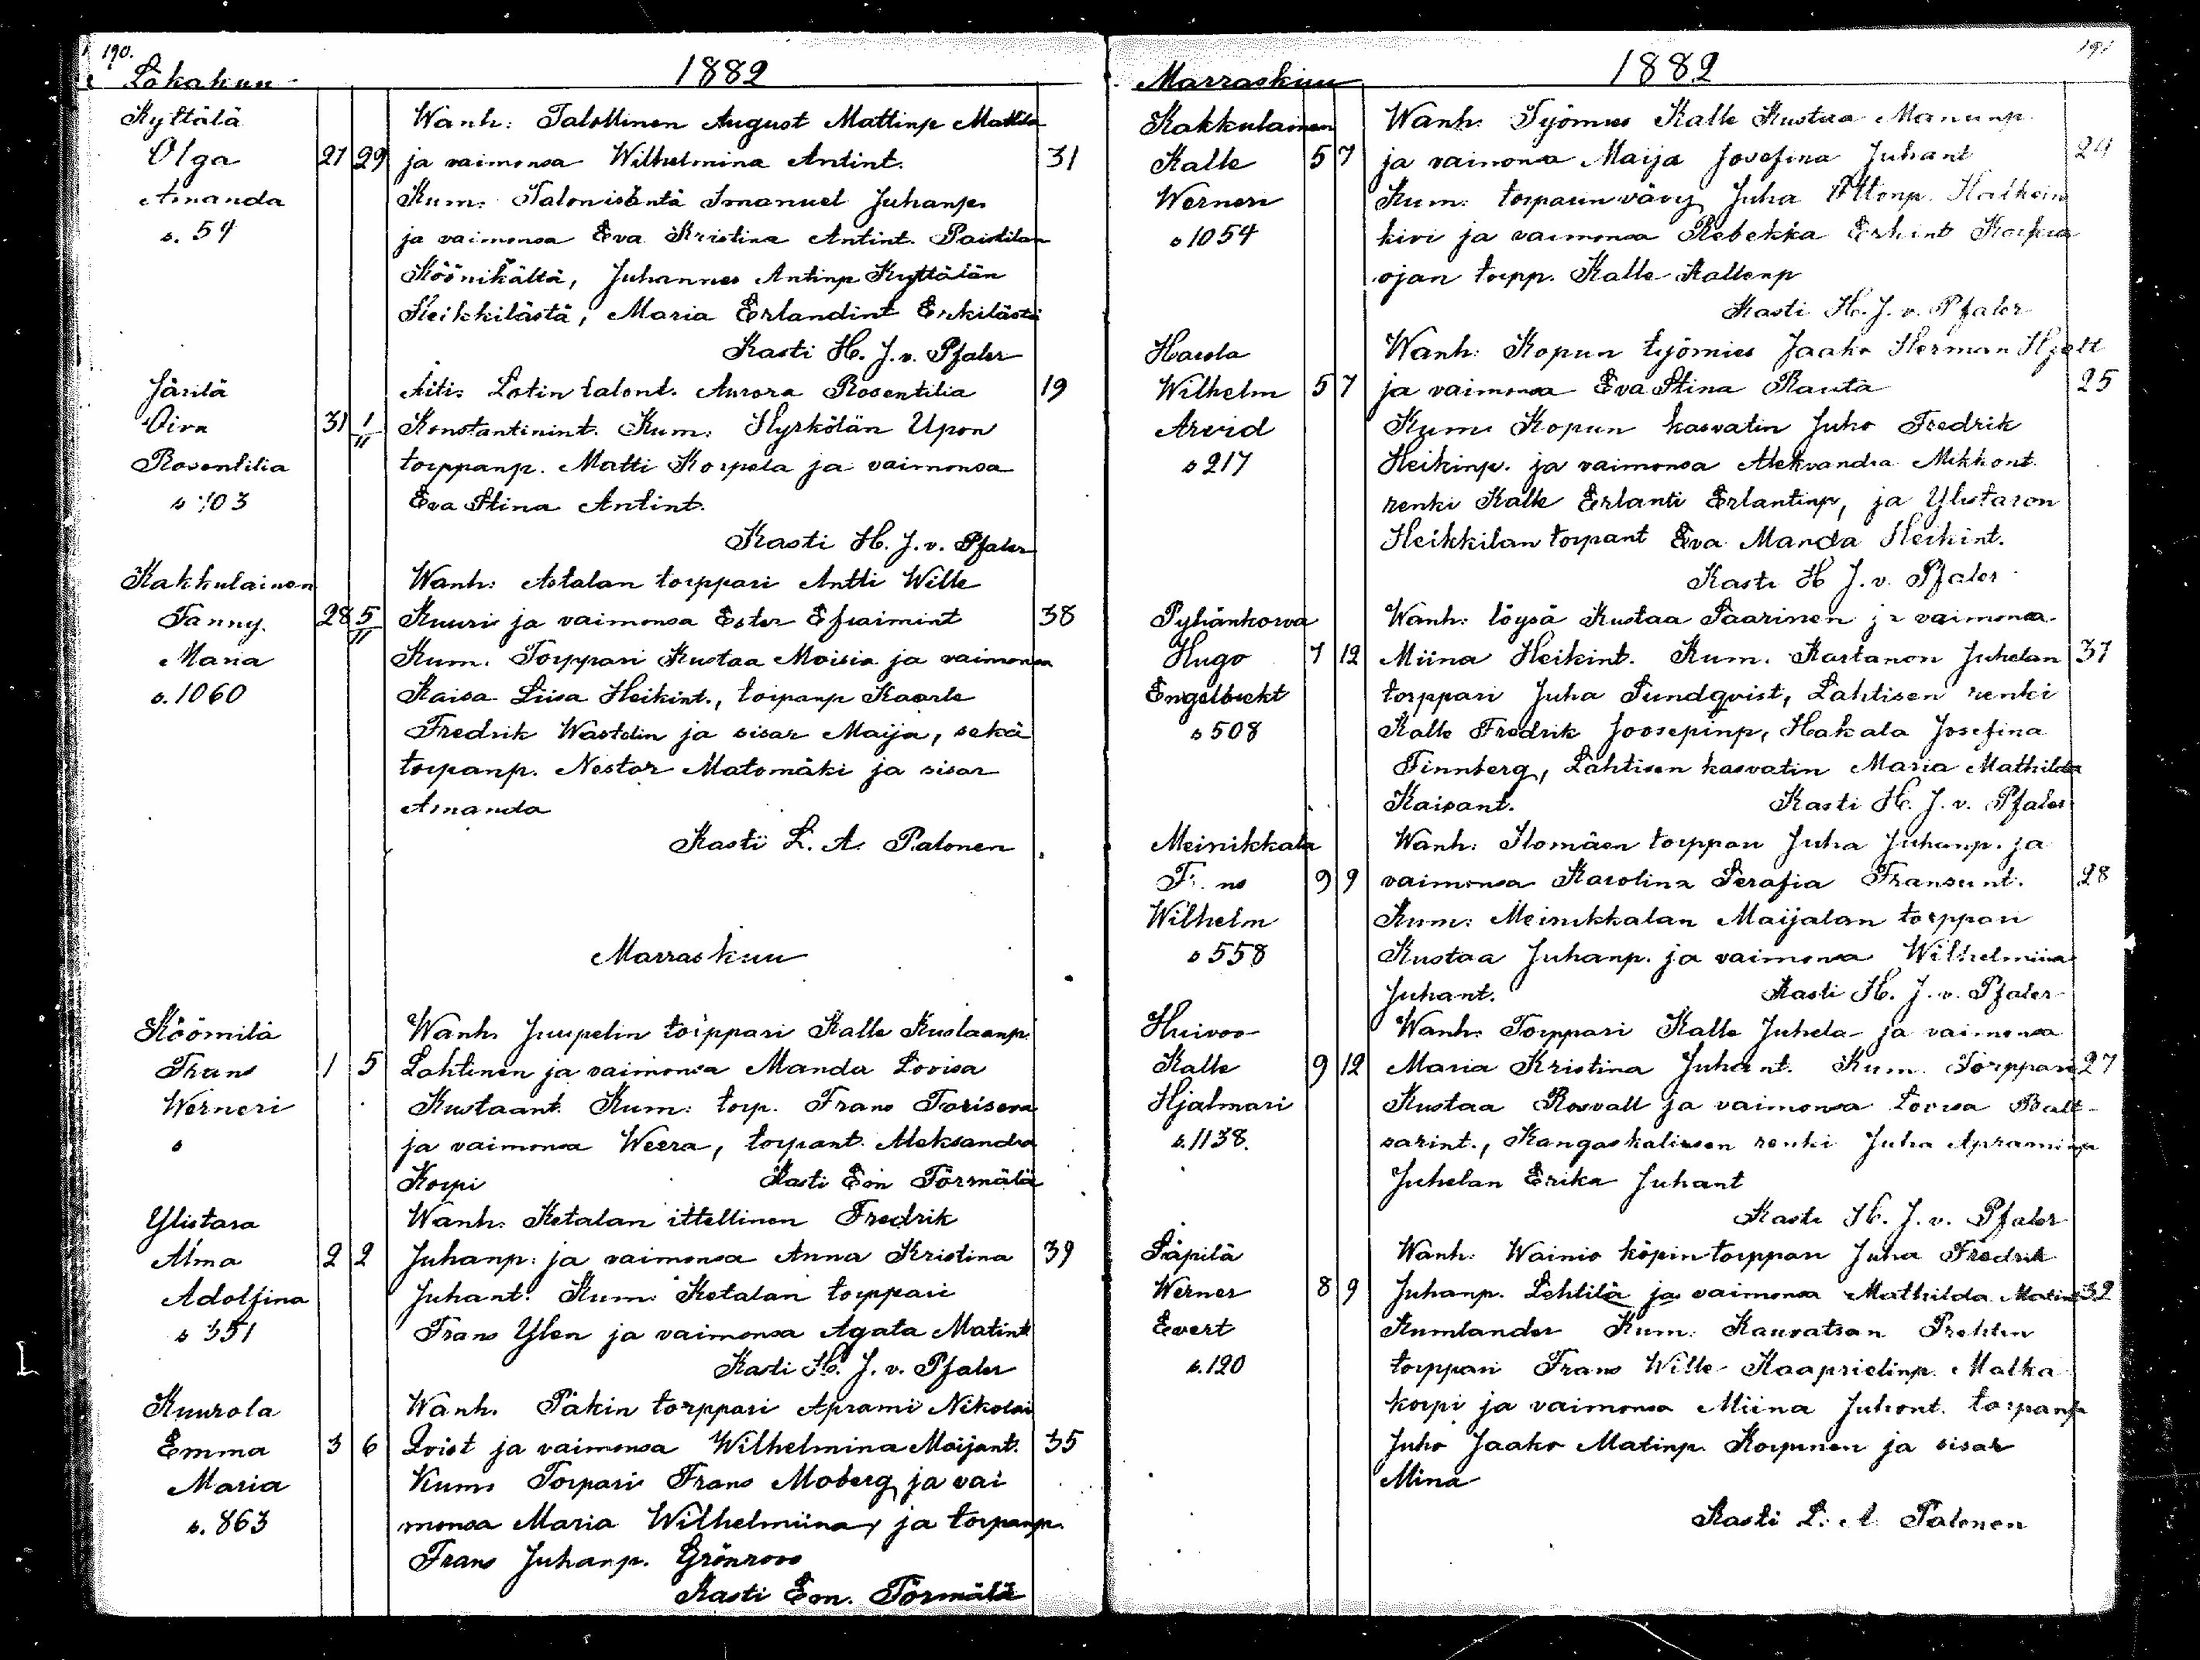 190.
Lokakuu
1882
Kyttälä
Wanh: Talollinen August Mattinp Mattila
Olga 27 29 ja vaimonsa Wilhelmina Antint. 31
Amanda
Kum: Talonisäntä Imanuel Juhanp.
s. 54
ja vaimonsa Eva Kristina Antint. Paistilan
Köönikältä, Juhannes Antinp Kyttälän
Heikkilästä, Maria Erlandint Erkilästä
Kasti H. J. v. Pfaler
Järilä
Äiti: Lotin talont. Aurora Rosentilia 19
Oiva 31 1/11 Konstantinint. Kum: Hyrkölän Upon
Rosentilia
torppanp. Matti Korpela ja vaimonsa
s 703
Eva Stina Antint.
Kasti H. J. v. Pfaler
Kakkulainen
Wanh: Astalan torppari Antti Wille
Fanny 28 5/11 Kuuri ja vaimonsa Ester Efraimint 38
Maria
Kum. Torppari Kustaa Moisio ja vaimonsa
s. 1060
Kaisa Liisa Heikint., torpanp Kaarle
Fredrik Wastelin ja sisar Maija, sekä
torpanp. Nestor Matomäki ja sisar
Amanda
Kasti L. A. Palonen
Marraskuu
Köömilä
Wanh. Juupelin torppari Kalle Kustaanp.
Frans 1 5 Lahtinen ja vaimonsa Manda Lovisa
Werneri
Kustaant. Kum: torp. Frans
s
ja vaimonsa Weera, torpant. Aleksandra
Korpi Kasti Em Törmälä
Ylistara
Wanh. Ketalan ittellinen Fredrik
Alma 2 2 Juhanp. ja vaimonsa Anna Kristina 39
Adolfina
Juhant. Kum. Ketalan torppari
s 351
Frans Ylen ja vaimonsa Agata Matint
Kasti H. J. v. Pfaler
Kuurola
Wanh. Päkin torppari Aprami Nikolai
Emma 3 6 Qvist ja vaimonsa Wilhelmina Maijant. 35
Maria
Kum. Torpari Frans Moberg ja vai
s. 863
monsa Maria Wilhelmiina, ja torpanp.
Frans Juhanp. Grönroos
Kasti Em. Törmälä
191
Marraskuu
1882
Kakkulainen
Wanh. Työmies Kalle Kustaa Manunp.
Kalle 5 7 ja vaimonsa Maija Josefina Juhant 24
Werneri
Kum: torpanvävy Juha Ottonp. Halkein
s 1054
kivi ja vaimonsa Rebekka Erkint Korpia
ojan torpp. Kalle Kallenp
Kasti H. J. v. Pfaler
Haeola
Wanh: Kopun työmies Jaako Herman Hjelt
Wilhelm 5 7 ja vaimonsa Eva Stina Rauta 25
Arvid
Kum. Kopun kasvatin Juho Fredrik
s 217
Heikinp. ja vaimonsa Aleksandra Mikkont.
renki Kalle Erlanti Erlantinp, ja Ylistaron
Heikkilan torpant Eva Manda Heikint.
Kasti H J. v. Pfaler
Pyhänkorva
Wanh: löysä Kustaa Saarinen ja vaimonsa
Hugo 7 12 Miina Heikint. Kum. Kastanon Juhelan 37
Engelbrekt
torppari Juha Sundqvist, Lahtisen renki
s 508
Kalle Fredrik Joosepinp, Hakala Josefina
Finnberg, Lahtisen kasvatin Maria Mathilda
Kaisant. Kasti H. J. v. Pfaler
Meinikkala
Wanh: Ilomäen torppari Juha Juhanp. ja
9 9 vaimonsa Karolina Serafia Fransunt. 28
Wilhelm
Kum: Meinikkalan Maijalan torppari
s 558
Kustaa Juhanp. ja vaimonsa Wilhelmiina
Juhant. Kasti H. J. v. Pfaler
Huivoo
Wanh: Torppari Kalle Juhela ja vaimonsa
Kalle 9 12 Maria Kristina Juhant. Kum. Torppari 27
Hjalmari
Kustaa Rosvall ja vaimonsa Lovisa Balt-
s. 1138.
sarint., Kangaskalisen renki Juha Apraminp
Juhelan Erika Juhant
Kasti H. J. v. Pfaler
Säpilä
Wanh: Wainio köpin torppari Juha Fredrik
Werner 8 9 Juhanp. Lehtilä ja vaimonsa Mathilda Matint 32
Evert
Kumlander Kum: Kauvatsan
s. 120
torppari Frans Wille Kaaprielinp. Malka
korpi ja vaimonsa Miina Juhont. torpanp
Juho Jaako Matinp. Korpinen ja sisar
Mina
Kasti L. A. Palonen